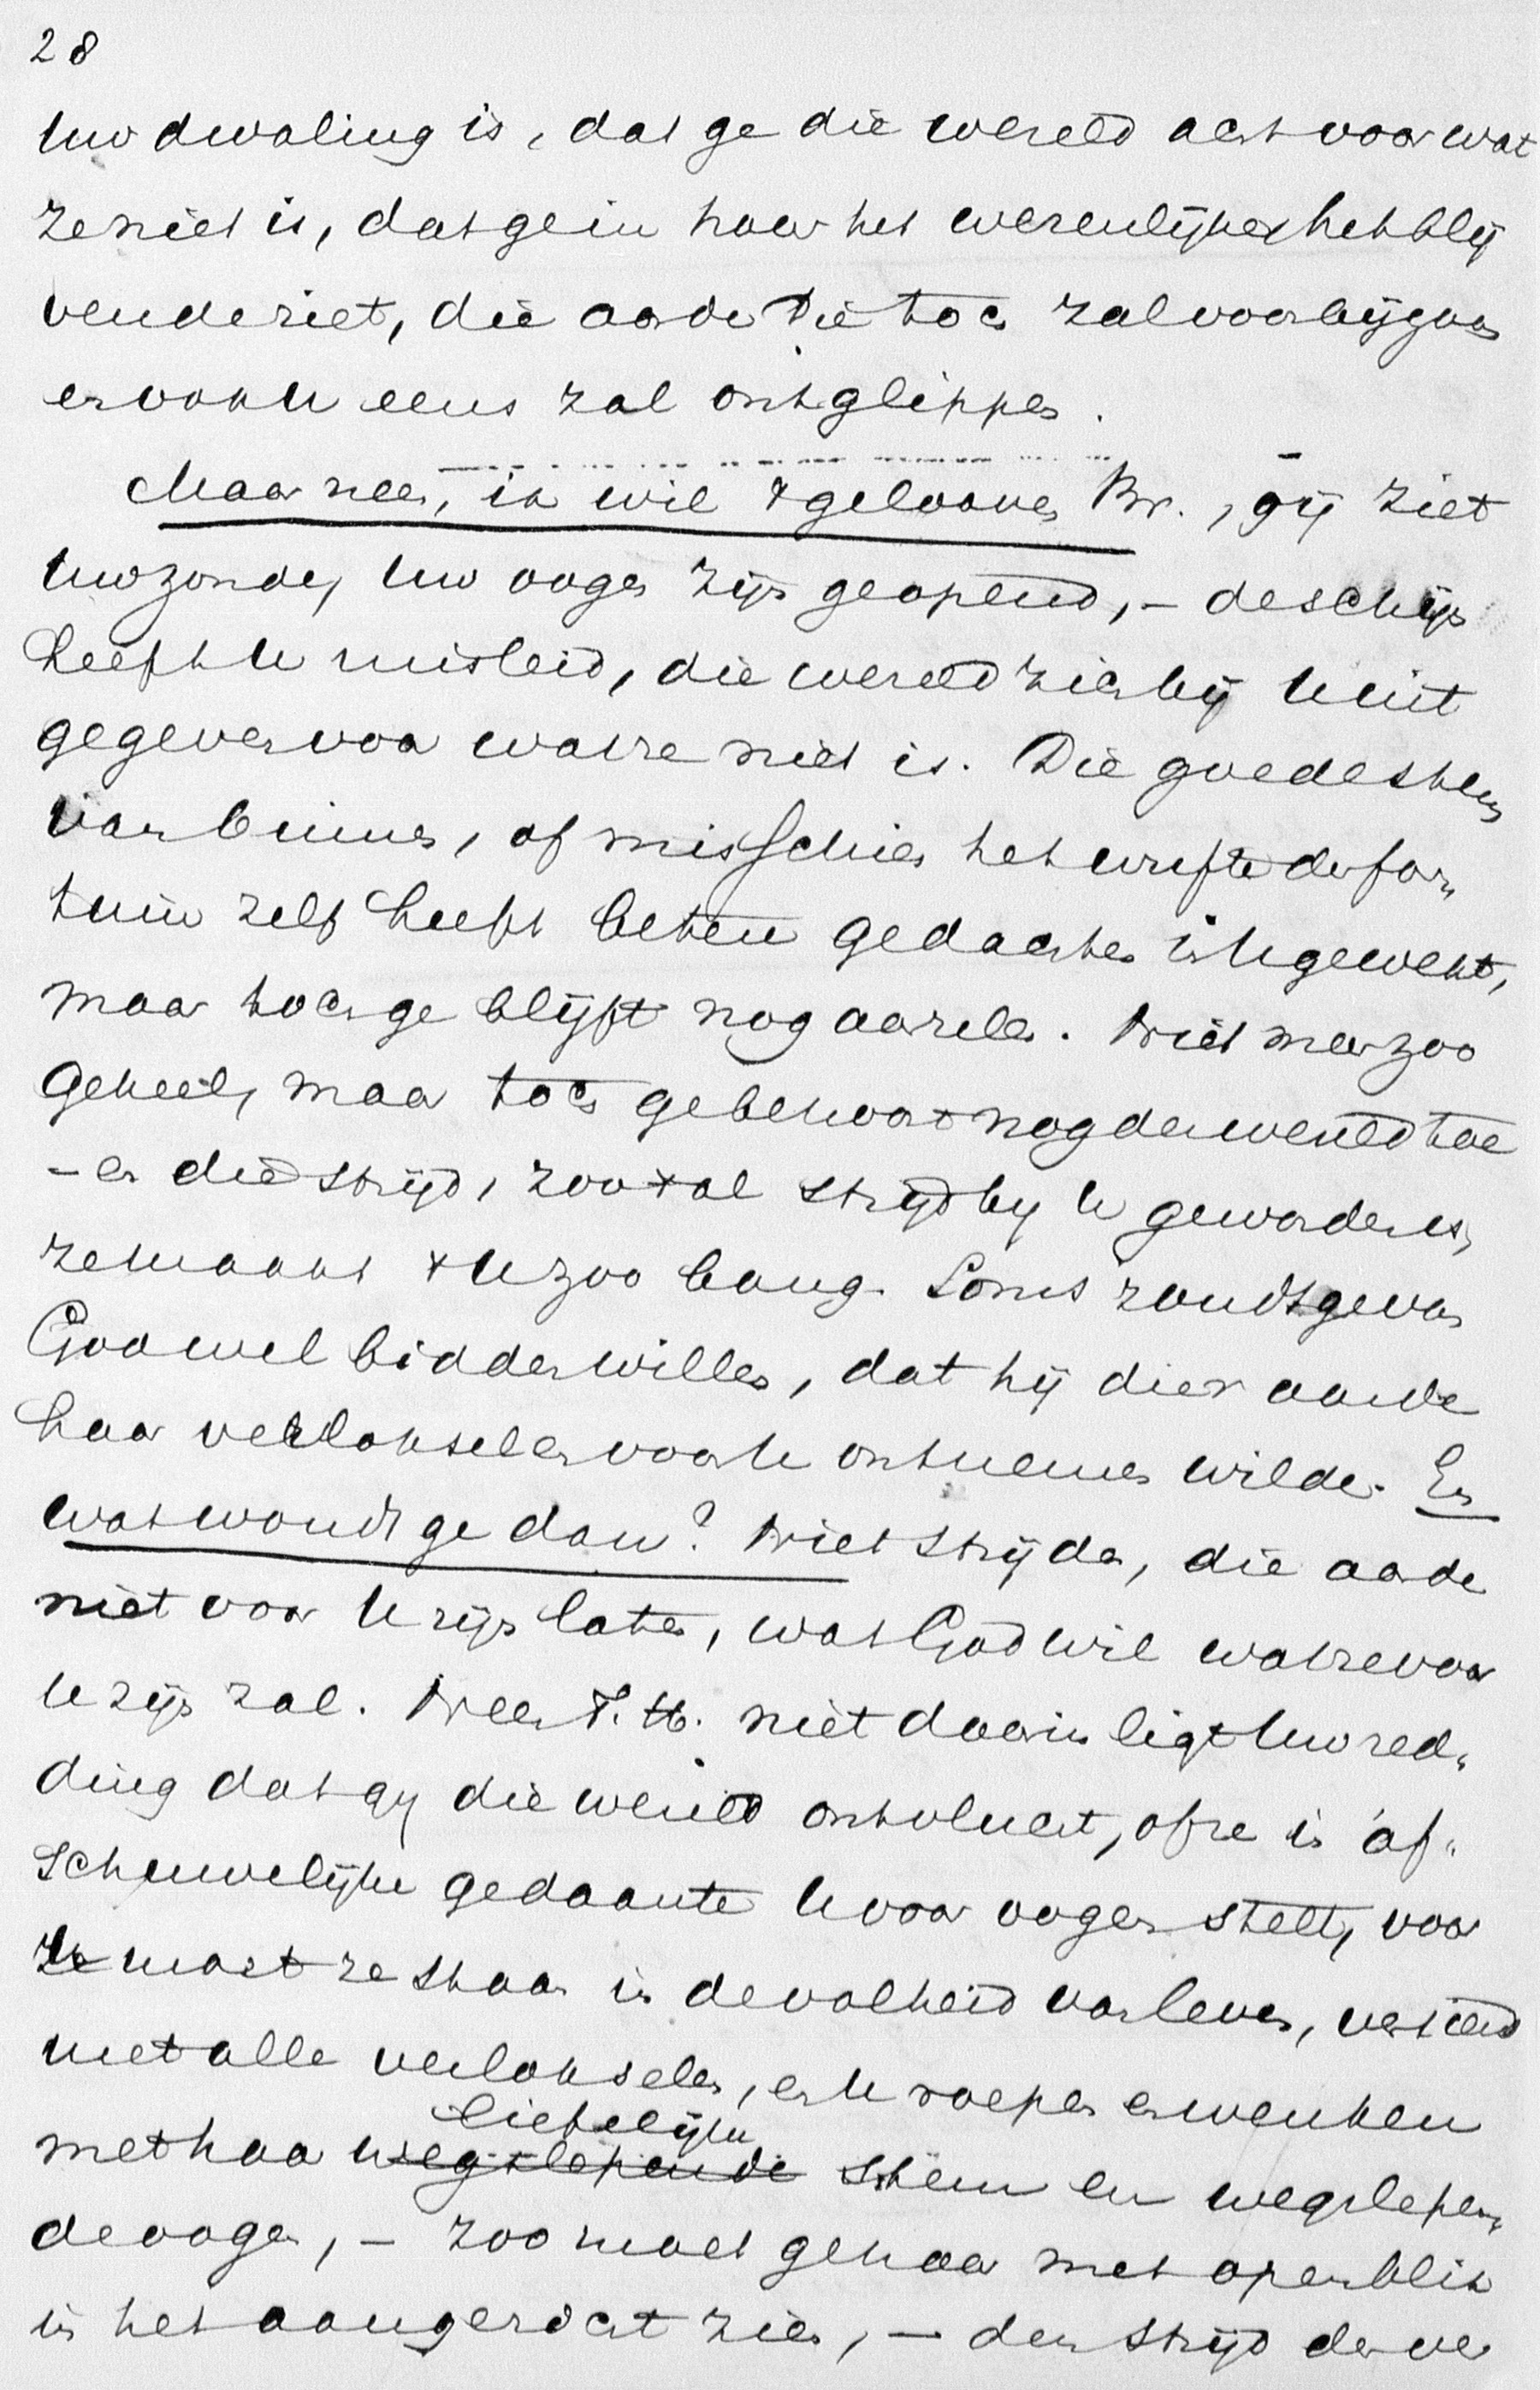 28
Uw dwaling is, dat ge die wereld acht voor wat
ze niet is, dat ge in haar het wezenlijke, het blij
vende ziet, die aarde die toch zal voorbijgaan
en ook U eens zal ontglippen.
Maar neen, ik wil gelooven Br., gij ziet
Uw zonde, Uw oogen zijn geopend, – de schijn
heeft U misleid, die wereld zich bij U uit
gegeven voor wat ze niet is. Die goede stem
van binnen, of misschien het wufte der for„
tuin zelf heeft betere gedachten in U gewekt,
maar toch ge blijft nog aarzelen. Niet meer zoo
geheel, maar toch ge behoort nog der wereld toe
– en die strijd, zoo 't al strijd bij U geworden is,
ze maakt U zoo bang. Soms zoudt ge van
God wel bidden willen, dat hij dier aarde
haar verlokselen voor U ontnemen wilde. En
wat woudt ge dan? Niet strijden, die aarde
niet voor U zijn laten, wat God wil wat ze voor
U zijn zal. Neen T. H. niet daarin ligt Uw red„
ding dat gij die wereld ontvlucht, of ze in af„
schuwelijke gedaante U voor oogen stelt, voor
U moet ze staan in de volheid van leven, versierd
met alle verlokselen, en U roepen en wenken
liefelijke
met haar wegslepende stem en wegslepen„
de oogen, – zoo moet ge haar met open blik
in het aangezicht zien, – den strijd der ver